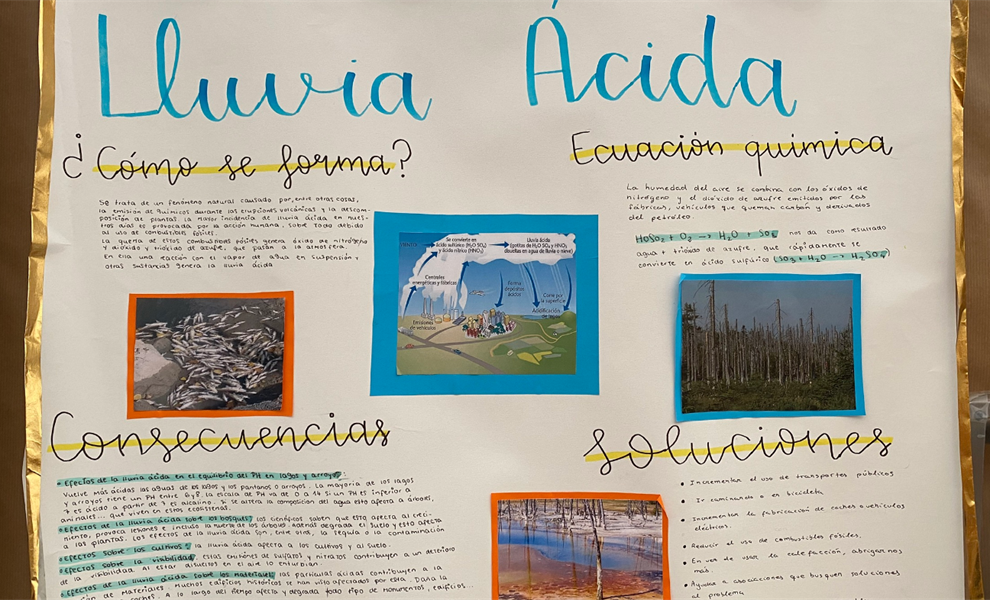 Lluvia Ácida
¿Cómo se forma?
Se trata de un fenómeno natural causado por, entre otras cosas,
la emisión de químicos durante las erupciones volcánicas y la descom-
posición de plantas. La mayor incidencia de lluvia ácida en nues-
tros días es provocada por la acción humana, sobre todo debido
al uso de combustibles fósiles.
La quema de estos combustibles fósiles genera óxido de nitrógeno
y dióxido de azufre, que pasan a la atmosfera.
En ella una reacción con el vapor de agua en suspensión y
otras sustancias genera la lluvia ácida
Ecuación quimica
La humedad del aire se combina con los óxidos de
nitrógeno y el dióxido de azufre emitidos por las
fábricas, vehículos que queman carbón y derivados
del petróleo.
nos da como resultado
agua + trióxido de azufre, que rápidamente se
convierte en ácido sulfúrico (SO3 + H2O → H2SO4)
Se convierte en
ácido sulfúrico (H2SO4)
y ácido nítrico (HNO3)
Lluvia ácida
(gotitas de H2SO4 y HNO3
disueltas en agua de lluvia o nieve)
Centrales
energéticas y fábricas
Forma
depósitos
ácidos
Corre por
la superficie
Acidificación
de lagos
Emisiones
de vehículos
Consecuencias
• Efectos de la lluvia ácida en el equilibrio del PH en lagos y arroyos:
Vuelve más ácidas las aguas de los lagos y los pantanos o arroyos. La mayoría de los lagos
y arroyos tiene un PH entre 6 y 8, la escala de PH va de 0 a 14 si un PH es inferior a
7 es ácido a partir de 7 es alcalino. Si se altera la composición del agua esto afecta a árboles,
animales... que viven en estos ecosistemas.
• Efectos de la lluvia ácida sobre los bosques: los científicos saben que esto afecta al creci-
miento, provoca lesiones e incluso la muerte de los árboles. Además degrada el suelo y esto afecta
a las plantas. Los efectos de la lluvia ácida son, entre otros, la sequía o la contaminación
• Efectos sobre los cultivos: la lluvia ácida afecta a los cultivos y al suelo.
• Efectos sobre la visibilidad: estas emisiones de sulfatos y nitratos contribuyen a un deterioro
de la visibilidad, al estar disueltos en el aire lo enturbian.
• Efectos de la lluvia ácida sobre los materiales: las partículas ácidas contribuyen a la
de materiales. Muchos edificios históricos se han visto afectados por esta. Daña la
coches. A lo largo del tiempo afecta y degrada todo tipo de monumentos, edificios...
Soluciones
• Incrementar el uso de transportes públicos
• Ir caminando o en bicicleta
• Incrementar la fabricación de coches o vehículos
eléctricos.
• Reducir el uso de combustibles fósiles.
• En vez de usar la calefacción, abrigarnos
más.
• Ayudar a asociaciones que busquen soluciones
al problema